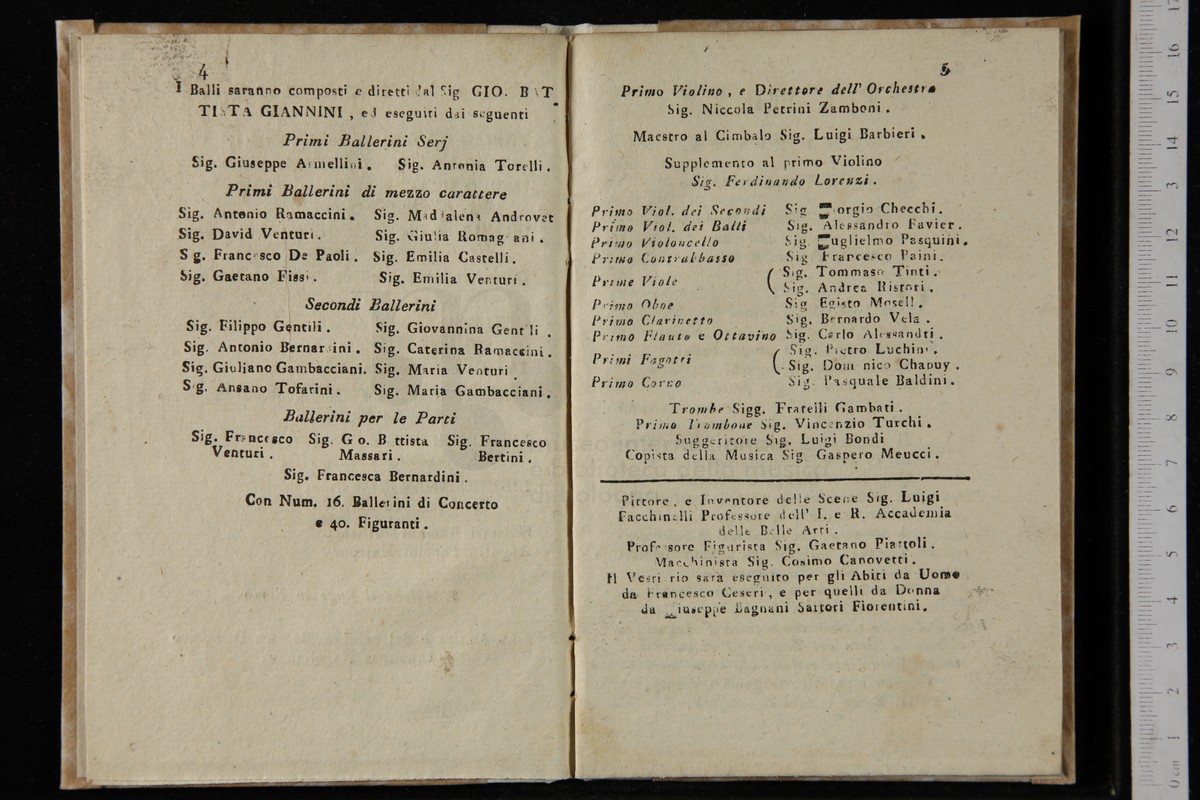 4
I Balli saranno composti e diretti dal Sig GIO. BAT
TISTA GIANNINI , ed eseguiti dai seguenti
Primi Ballerini Serj
Sig. Giuseppe Armellini. Sig. Antonia Torelli.
Primi Ballerini di mezzo carattere
Sig. Antonio Ramaccini. Sig. Maddalena Androvet
Sig. David Venturi. Sig. Giulia Romagnani.
Sig. Francesco De Paoli. Sig. Emilia Castelli.
Sig. Gaetano Fissi. Sig. Emilia Venturi.
Secondi Ballerini
Sig. Filippo Gentili. Sig. Giovannina Gentili.
Sig. Antonio Bernardini. Sig. Caterina Ramaccini.
Sig. Giuliano Gambacciani. Sig. Maria Venturi
Sig. Ansano Tofarini. Sig. Maria Gambacciani.
Ballerini per le Parti
Sig. Francesco Sig. Gio. Battista Sig. Francesco
Venturi. Massari. Bertini.
Sig. Francesca Bernardini.
Con Num. 16. Ballerini di Concerto
e 40. Figuranti.
5
Primo Violino, e Direttore dell' Orchestra
Sig. Niccola Petrini Zamboni.
Maestro al Cimbalo Sig. Luigi Barbieri.
Supplemento al primo Violino
Sig. Ferdinando Lorenzi.
Primo Viol. dei Secondi Sig Giorgio Checchi.
Primo Viol. dei Balli Sig. Alessandro Favier.
Primo Violoncello Sig. Guglielmo Pasquini.
Primo Contralbasso Sig Francesco Paini.
Prime Viole ( Sig. Tommaso Tinti.
Sig. Andrea Ristori.
Primo Oboe Sig Egisto Mosell.
Primo Clarinetto Sig. Bernardo Vela.
Primo Flauto e Ottavino Sig. Carlo Alessandri.
Primi Fagotti ( Sig. Pietro Luchini.
Sig. Domenico Chapuy.
Primo Corno Sig. Pasquale Baldini.
Trombe Sigg. Fratelli Gambati.
Primo Trombone Sig. Vincenzio Turchi.
Suggeritore Sig. Luigi Bondi
Copista della Musica Sig Gaspero Meucci.
Pittore, e Inventore delle Scene Sig. Luigi
Facchinelli Professore dell' I. e R. Accademia
delle Belle Arti.
Professore Figurista Sig. Gaetano Piattoli.
Macchinista Sig. Cosimo Canovetti.
Il Vestiario sarà eseguito per gli Abiti da Uomo
da Francesco Ceseri, e per quelli da Donna
da Giuseppe Bagnani Sartori Fiorentini.
0 cm 1 2 3 4 5 6 7 8 9 10 11 12 13 14 15 16 17